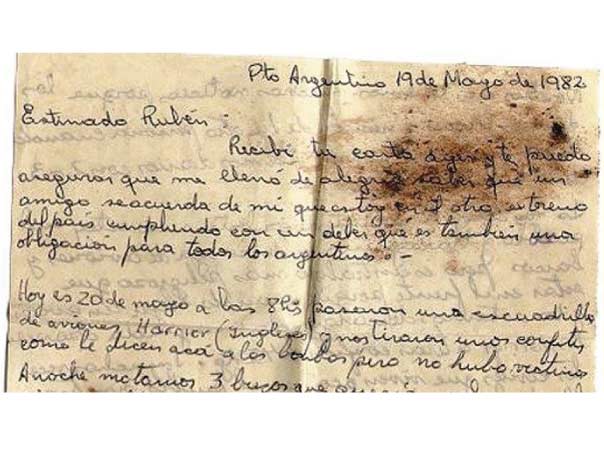 Pto Argentino 19 de Mayo de 1982
Estimado Rubén:
Recibí tu carta ayer y te puedo
asegurar que me llenó de alegría saber que un
amigo se acuerda de mi que estoy en el otro extremo
del país cumpliendo con un deber que es también una
obligación para todos los argentinos. -
Hoy es 20 de mayo a las 8hs pasaron una escuadrilla
de aviones Harrier (Ingleses) y nos tiraron unos confites
como le dicen acá a las bombas pero no hubo victimas
Anoche matamos 3 buzos que